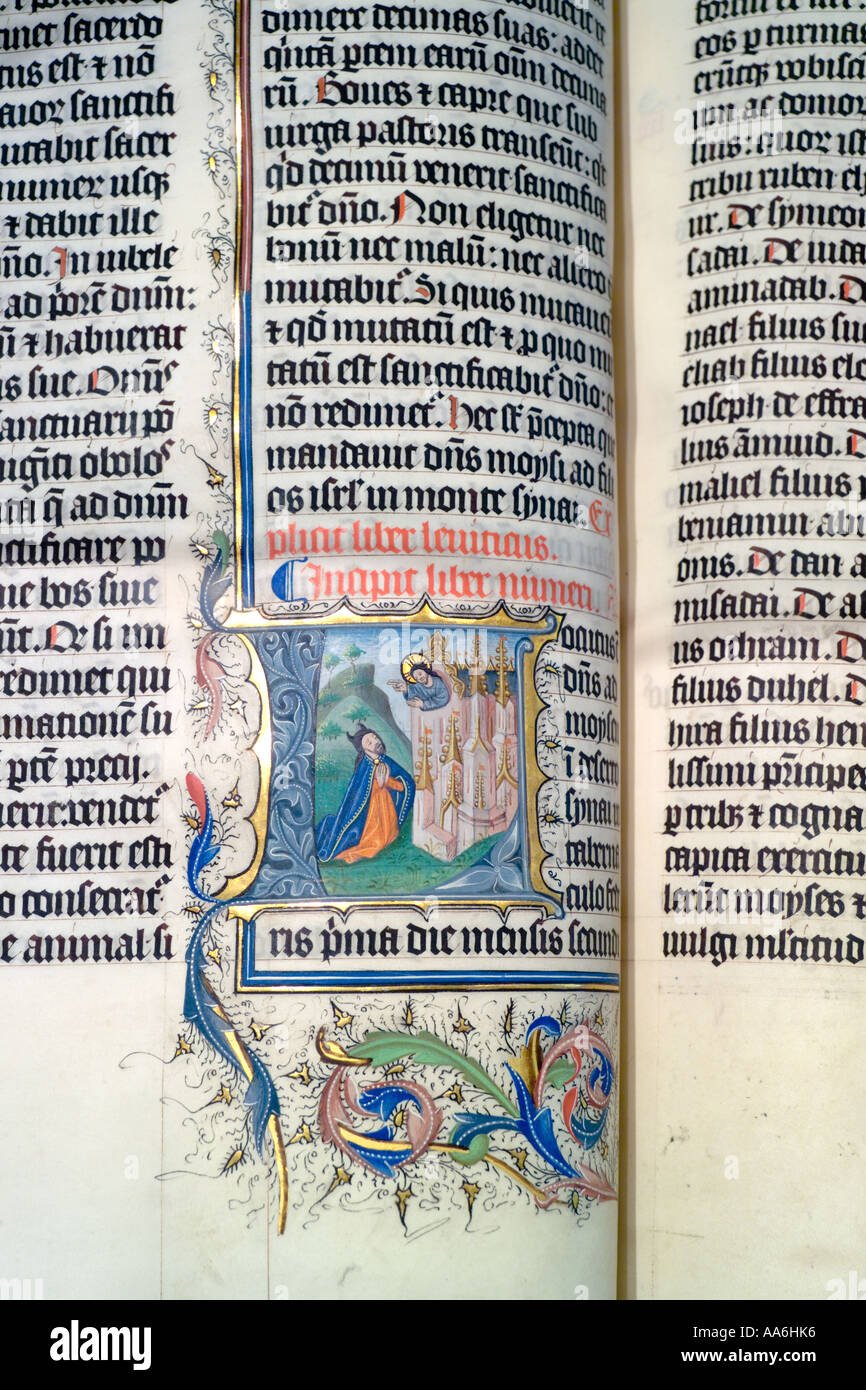 tinet sacerdo
tus est ⁊ nō
aior sanctifi
mutabit sacer
numerū usq;
⁊ dabit ille
dño. In iubele
ad p̄orē dñm:
⁊ habuerat
s sue. Omīs
sanctuarij pō
ad dñm
ctificare po
ue bos siue
Qd si im
redimet qui
mationē su
ptē precij.
uendet
te fuerit esti
o consecrat
e animal si
dimere decimas suas: addet
q̄ntā ptem earū oīm decima
rū. Boues ⁊ capre que sub
uirga pastoris transeūt: 
qd decimū uenerit sanctifica
bit dño. Non eligetur nec
bonū nec malū: nec altero
mutabit. Si quis mutaueri
⁊ qd mutatū est ⁊ p quo mu
tatū est sanctificabit dño: e
nō redimet. Hec st p̄cepta que
mandauit dñs moysi ad fili
os isrl in monte synai. Ex
plicit liber leuiticus.
Incipit liber numeri.
Locutus
dñs ad
moysen
ī deserto
synai i
taberna
culo fede
ris p̄ma die mensis secundi
eos p turmas
erūtq; uobiscū
ac domorū
suis: quor ist
tribu ruben el
ur. De symeon
sadai. De iuda
aminadab. D
nael filius su
eliab filius elo
ioseph de effra
lius āmiud. D
maliel filius p
beniamin abi
onis. De dan a
misadai. De a
us ochram. D
filius duhel. D
hira filius hen
lissimi p̄ncipes
p tribz ⁊ cogna
capita exercitu
moyses ⁊
uulgi mltitud
alamy
alamy
Image ID: AA6HK6
www.alamy.com